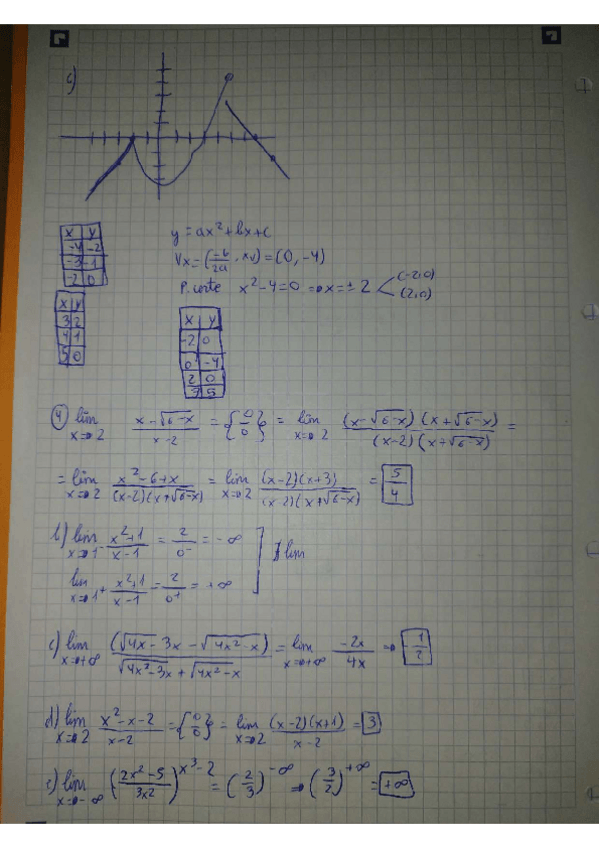 c)
x y
-4 -2
-3 -1
-2 0
x y
3 2
4 1
5 0
y = ax²+bx+c
Vx = (-b/2a, xv) = (0, -4)
P. corte x²-4=0 ⇒ x=±2 < (-2,0) (2,0)
x y
-2 0
0 -4
2 0
3 5
4) lim x→2 (x-√6-x)/(x-2) = {0/0} = lim x→2 (x-√6-x)(x+√6-x)/(x-2)(x+√6-x) =
= lim x→2 (x²-6+x)/(x-2)(x+√6-x) = lim x→2 (x-2)(x+3)/(x-2)(x+√6-x) = 5/4
b) lim x→1⁻ (x²+1)/(x-1) = 2/0⁻ = -∞ ] ∄ lim
lim x→1⁺ (x²+1)/(x-1) = 2/0⁺ = +∞
c) lim x→+∞ (√4x-3x-√4x²-x)/(√4x²-3x+√4x²-x) = lim x→+∞ -2x/4x → -1/2
d) lim x→2 (x²-x-2)/(x-2) = {0/0} = lim x→2 (x-2)(x+1)/(x-2) = 3
e) lim x→-∞ ((2x²-5)/3x2)^(x³-2) = (2/3)^-∞ → (3/2)^+∞ = +∞